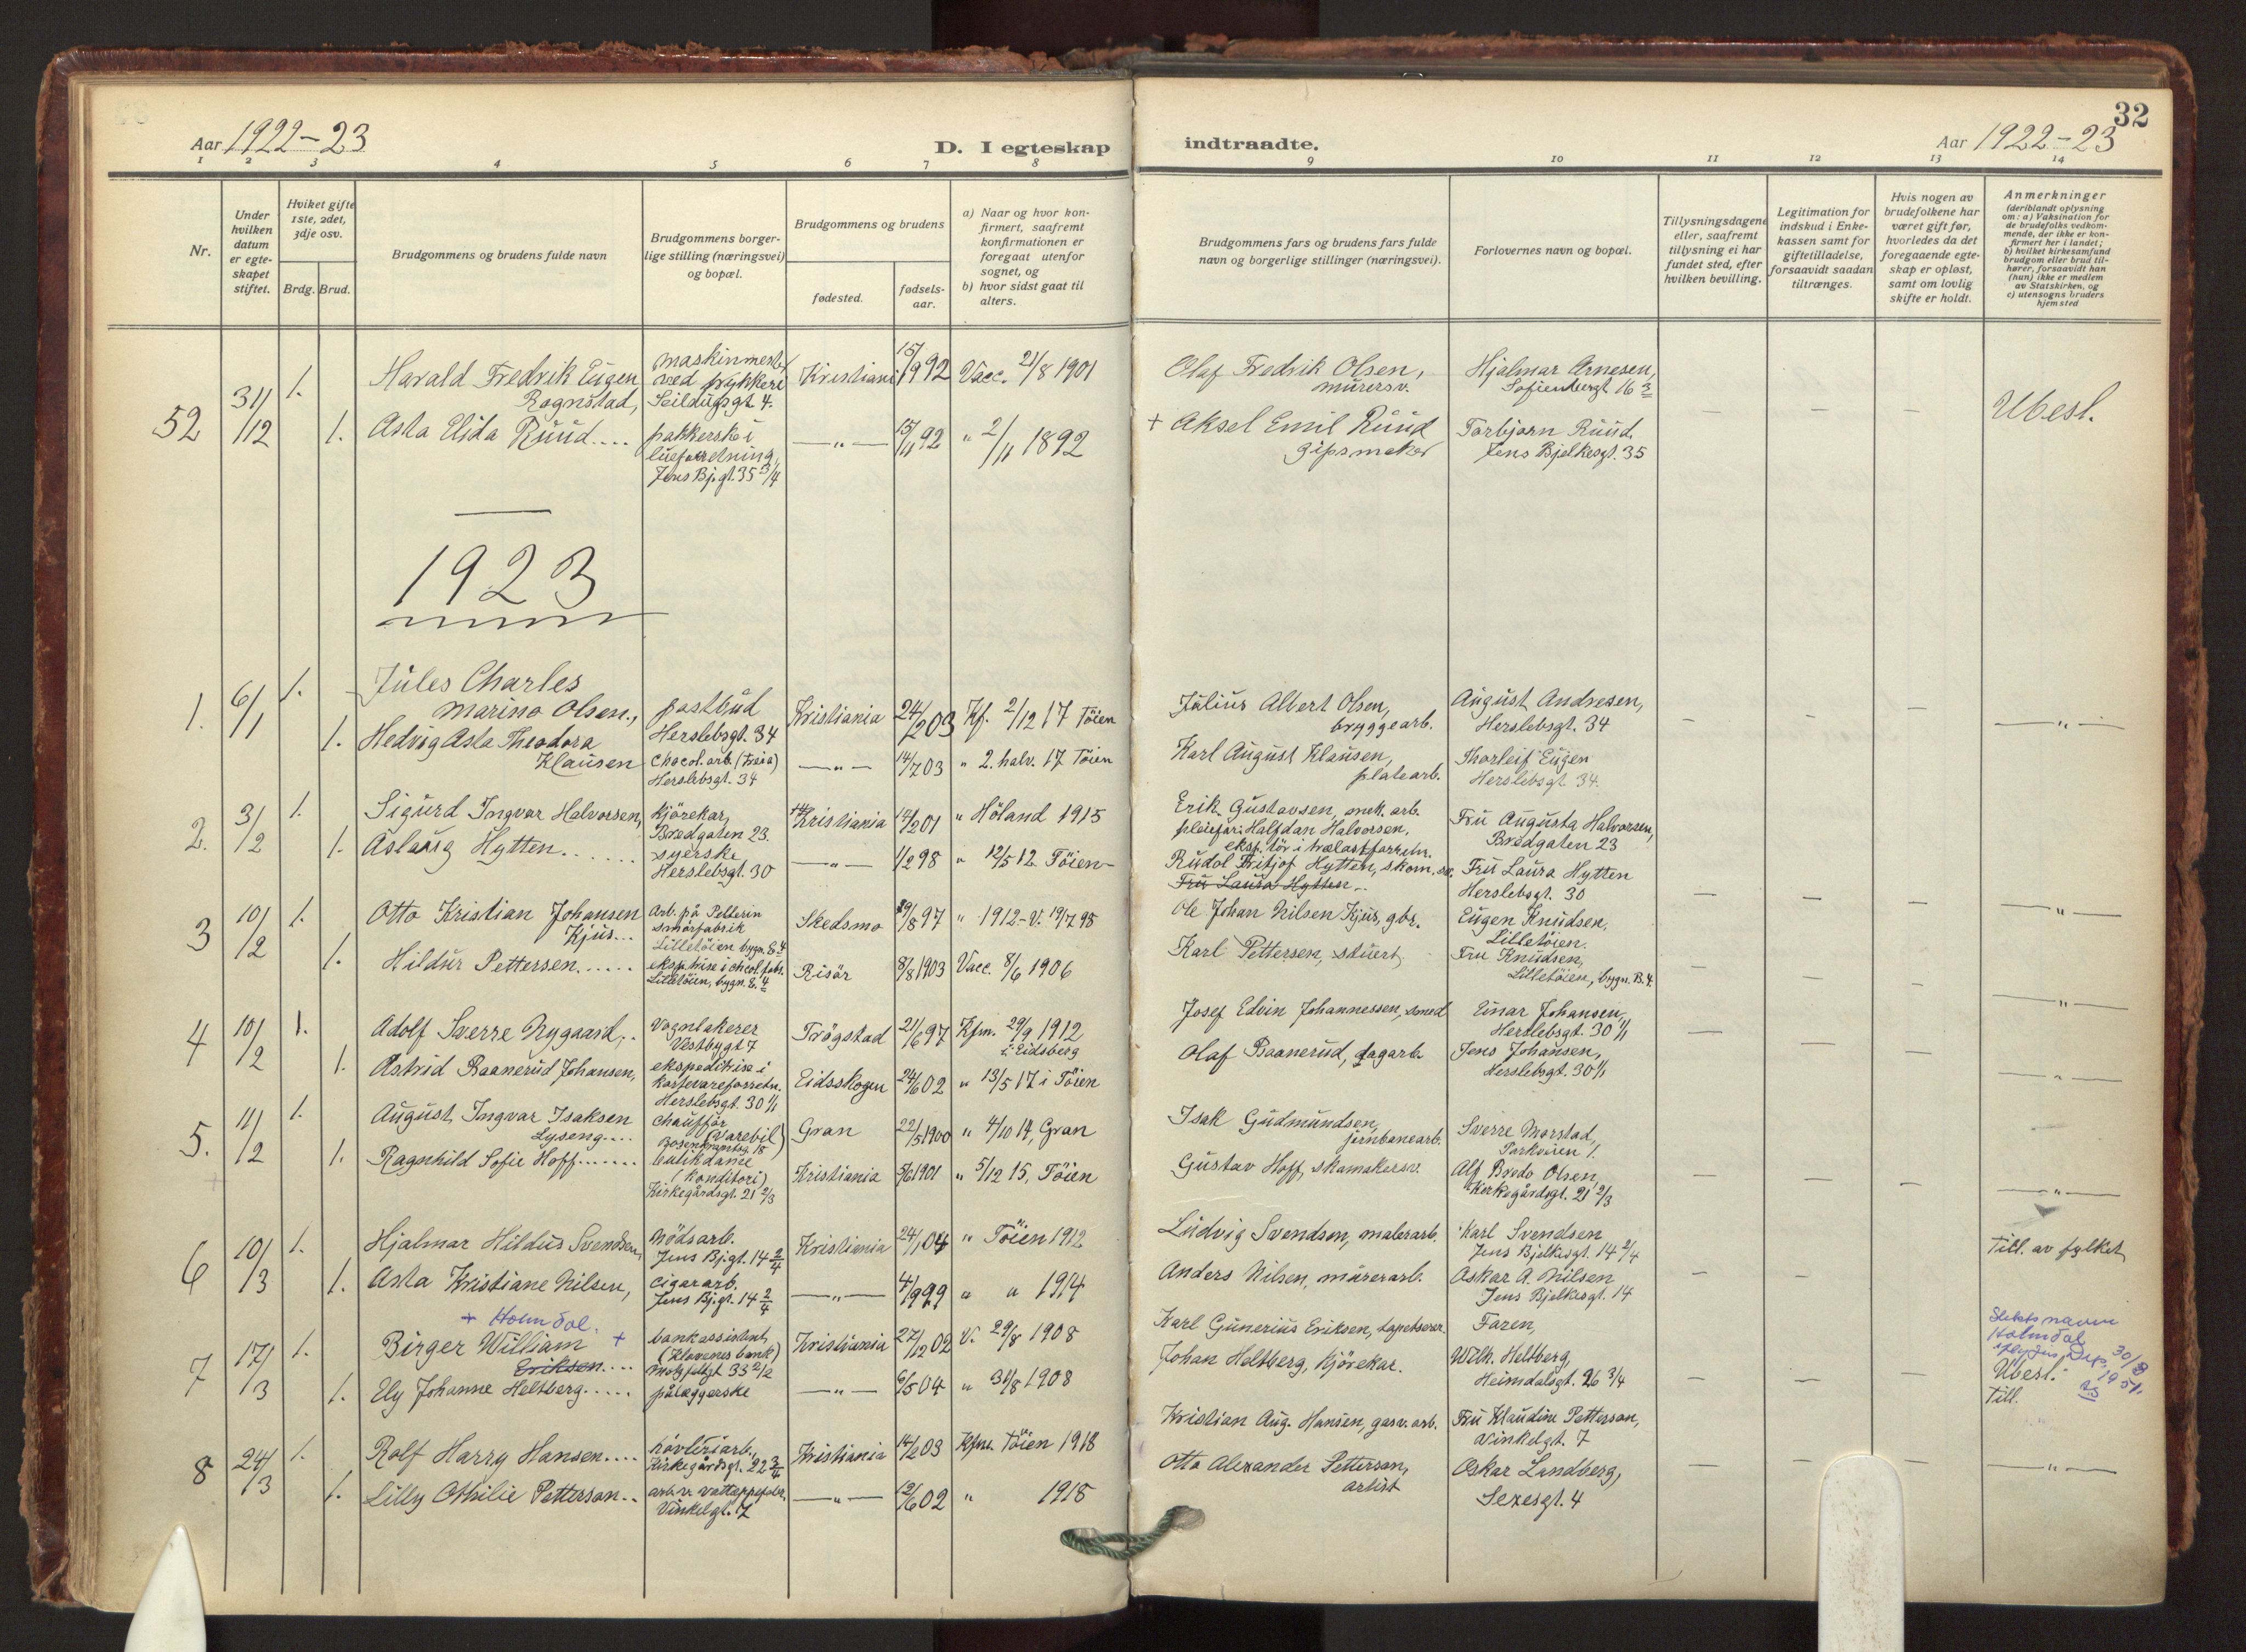 32
Aar 1922-23
D. I egteskap indtraadte.
Aar 1922-23
1 2 3 4 5 6 7 8 9 10 11 12 13 14
Nr.
Under
hvilken
datum
er egte-
skapet
stiftet.
Hviket gifte
1ste, 2det,
3dje osv.
Brdg. Brud.
Brudgommens og brudens fulde navn
Brudgommens borger-
lige stilling (næringsvei)
og bopæl.
Brudgommens og brudens
fødested.
fødsels-
aar.
a) Naar og hvor kon-
firmert, saafremt
konfirmationen er
foregaat utenfor
sognet, og
b) hvor sidst gaat til
alters.
Brudgommens fars og brudens fars fulde
navn og borgerlige stillinger (næringsvei).
Forlovernes navn og bopæl.
Tillysningsdagene
eller, saafremt
tillysning ei har
fundet sted, efter
hvilken bevilling.
Legitimation for
indskud i Enke-
kassen samt for
giftetilladelse,
forsaavidt saadan
tiltrænges.
Hvis nogen av
brudefolkene har
været gift før,
hvorledes da det
foregaaende egte-
skap er opløst,
samt om lovlig
skifte er holdt.
Anmerkninger
(deriblandt oplysning
om: a) Vaksination for
de brudefolks vedkom-
mende, der ikke er kon-
firmert her i landet;
b) hvilket kirkesamfund
brudgom eller brud til-
hører, forsaavidt han
(hun) ikke er medlem
av Statskirken, og
c) utensogns bruders
hjemsted
52
31/12
1.
Harald Fredrik Eugen
Rognstad,
maskinmester
ved trykkeri
Seildugsgt 4.
Kristiania
15/9 92
Vacc. 21/8 1901
Olaf Fredrik Olsen,
murersv.
Hjalmar Arnesen,
Sofienbergt 16
Ubesl.
1.
Asta Elida Ruud....
pakkerske i
lueforretning,
Jens Bj.gt. 35 3/4
—„—
15/11 92
„ 2/11 1892
+ Aksel Emil Ruud
gipsmaker
Torbjørn Ruud.
Jens Bjelkesgt. 35
1923
1.
6/1
1.
Jules Charles
Marino Olsen.,
postbud
Herslebsgt. 34
Kristiania
24/2 03
Kf. 2/12 17 Töien
Julius Albert Olsen,
bryggearb.
August Andresen,
Herslebsgt. 34
—„—
1.
Hedvig Asta Theodora
Klausen
Chocol. arb. (Freia)
Herslebsgt. 34
—„—
14/7 03
„ 2. halv. 17 Töien
Karl August Klausen,
platearb.
Thorleif Eugen
Herslebsgt. 34.
2.
3/2
1.
Sigurd Ingvar Halvorsen,
kjörekar,
Bredgaten 23.
Kristiania
14/2 01
„ Höland 1915
Erik Gustavsen, mek. arb.
pleiefar: Halfdan Halvorsen,
eksp.tör i trælastforretn.
Fru Augusta Halvorsen,
Bredgaten 23
1.
Aslaug Hytten......
syerske
Herslebsgt. 30
—„—
1/2 98
„ 12/5 12 Töien
Rudol Fritjof Hytten, skom.sv.
Fru Laura Hytten
Fru Laura Hytten
Herslebsgt. 30
—„—
3
10/2
1.
Otto Kristian Johansen
Kjus...
Arb. på Pellerin
smörfabrik
Lilletöien bygn. 8 4
Skedsmo
29/8 97
„ 1912 - V. 19/7 98
Ole Johan Nilsen Kjus, gbr.
Eugen Knudsen,
Lilletöien.
1.
Hildur Pettersen.....
eksp.trise i chcol.fabr.
Lilletöien, bygn. 8. 4
Risör
8/8 1903
Vacc. 8/6 1906
Karl Pettersen, stuert
Fru Knudsen,
Lilletöien, bygn. B. 4.
—„—
4
10/2
1.
Adolf Sverre Nygaard,..
Vognlakerer
Vestbygt 7
Trögstad
21/6 97
Kfm. 29/9 1912
i Eidsberg
Josef Edvin Johannessen, smed
Einar Johansen,
Herslebsgt. 30 1/1
1.
Astrid Baanerud Johansen,
ekspeditrise i
kortevareforretn.
Herslebsgt. 30 1/1
Eidsskogen
24/6 02
„ 13/5 17 i Töien
Olaf Baanerud, dagarb.
Jens Johansen,
Herslebsgt. 30 1/1
—„—
5.
11/2
1.
August Ingvar Isaksen
Lyseng....
chaufför
(Varebil)
Gran
22/5 1900
„ 4/10 14, Gran
Isak Gudmundsen,
jernbanearb.
Sverre Morstad,
Parkveien 1.
1.
Ragnhild Sofie Hoff.......
butikdame
(konditori)
Kirkegårdsgt. 21 2/3
Kristiania
5/6 1901
„ 5/12 15, Töien
Gustav Hoff, skomakersv.
Alf Bredo Olsen,
Kirkegårdsgt. 21 2/3
—„—
6
10/3
1.
Hjalmar Hildus Svendsen,
nödsarb.
Jens Bj.gt. 14 2/4
Kristiania
24/1 04
„ Töien 1912
Ludvig Svendsen, malerarb.
Karl Svendsen
Jens Bjelkesgt. 14 2/4
Till. av fylket
1.
Asta Kristiane Nilsen,
cigararb.
Jens Bj.gt. 14 2/4
—„—
4/9 99
„ „ 1914
Anders Nilsen, murerarb.
Oskar A. Nilsen
Jens Bjelkesgt. 14
+ Holmdal.
7
17/3
1.
Birger William +
Eriksen....
bankassistent,
(Klovenes bank)
Motzfeldtgt 33 2/2
Kristiania
27/12 02
V. 29/8 1908
Karl Gunerius Eriksen, tapetserer.
Faren,
Slektsnavn
Holmdal
Just. Dep. 30/8
1951.
Ubesl.
Till.
1.
Ely Johanne Heltberg.....
pålæggerske
—„—
6/5 04
„ 31/8 1908
Johan Heltberg, kjörekar.
Wilh. Heltberg,
Heimdalsgt. 26 3/4
8
24/3
1.
Rolf Harry Hansen....
hövleriarb.,
Kirkegårdsgt. 22 3/4
Kristiania
14/2 03
Kfm. Töien 1918
Kristian Aug. Hansen, gasv. arb.
Fru Klaudine Petterson,
Vinkelgt. 7
1.
Lilly Othilie Petterson..
arb. v. vatteppefabr.
Vinkelgt. 7
—„—
12/6 02
„ 1918
Otto Alexander Petterson,
artist
Oskar Lundberg,
Sexesgt. 4
—„—